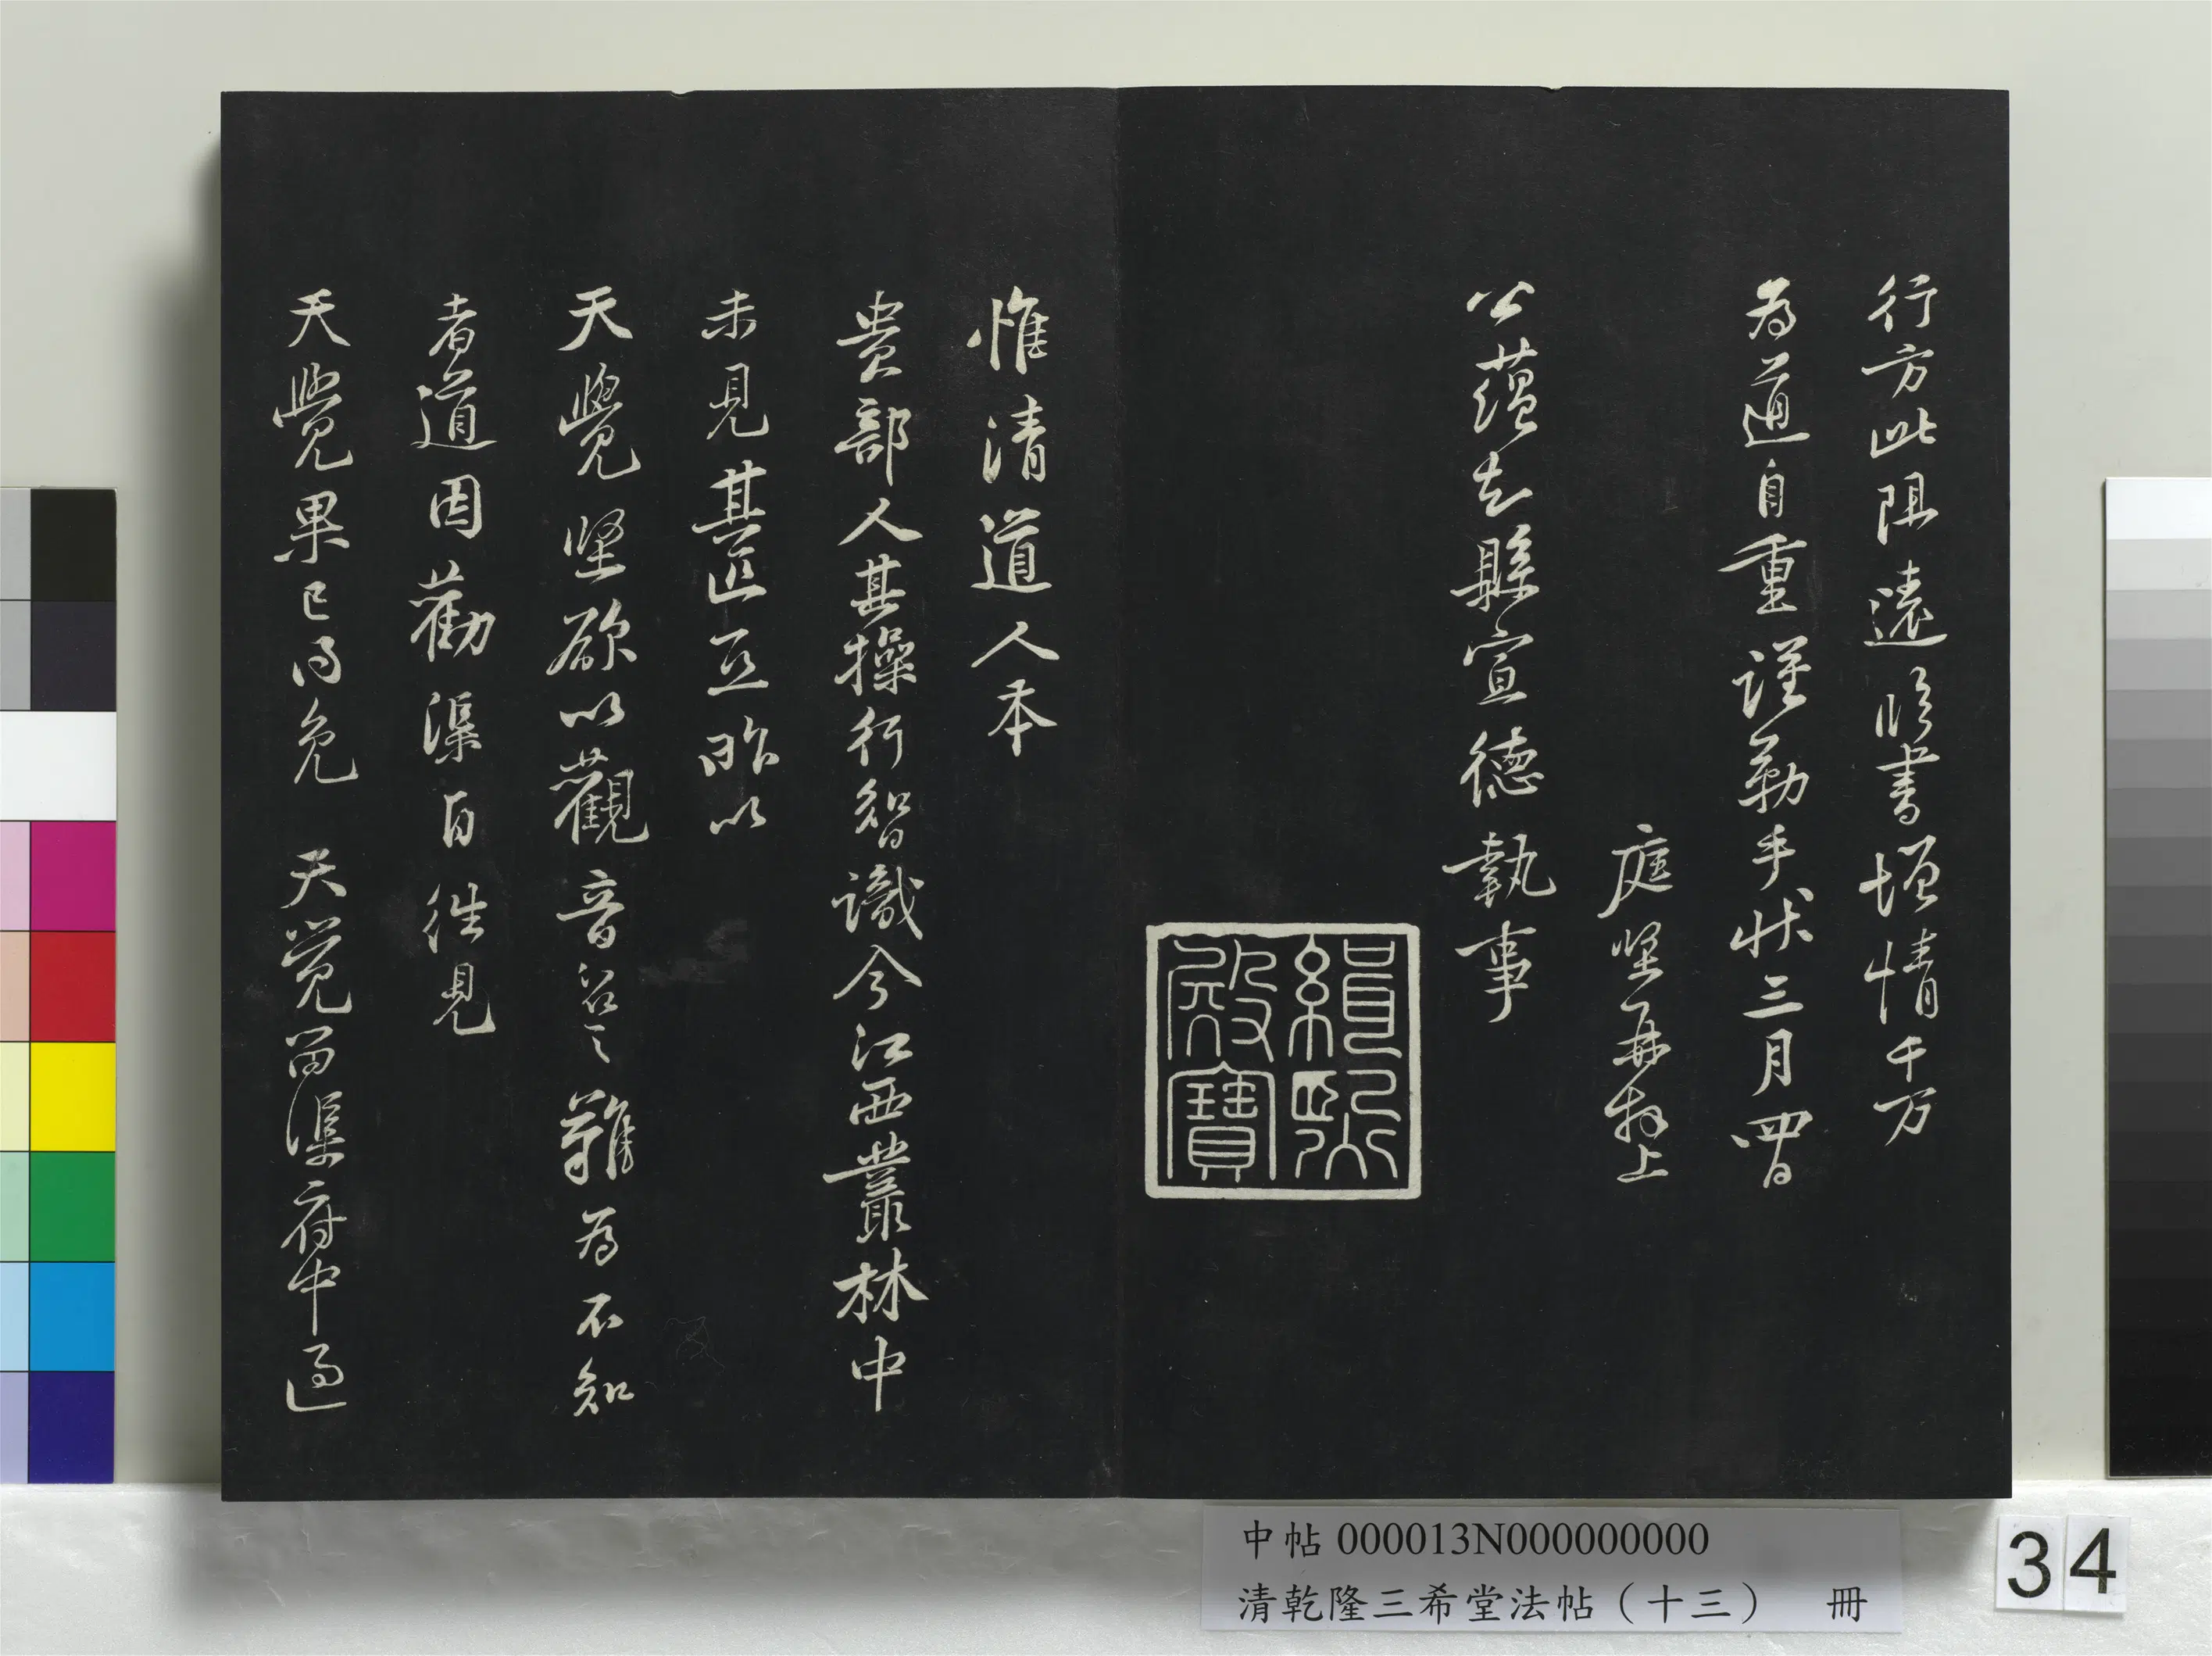 行方此阻遠臨書增情千万
為道自重謹勒手狀三月四日
庭堅再拜上
公蘊知縣宣德執事
緝熙
殿寶
惟清道人本
貴部人其操行智識今江西叢林中
未見其匹亞昨以
天覺堅欲以觀音召之難為不知
者道因勸渠自往見
天覺果已得免 天覺留渠府中過
中帖 000013N000000000
清乾隆三希堂法帖（十三） 冊
34